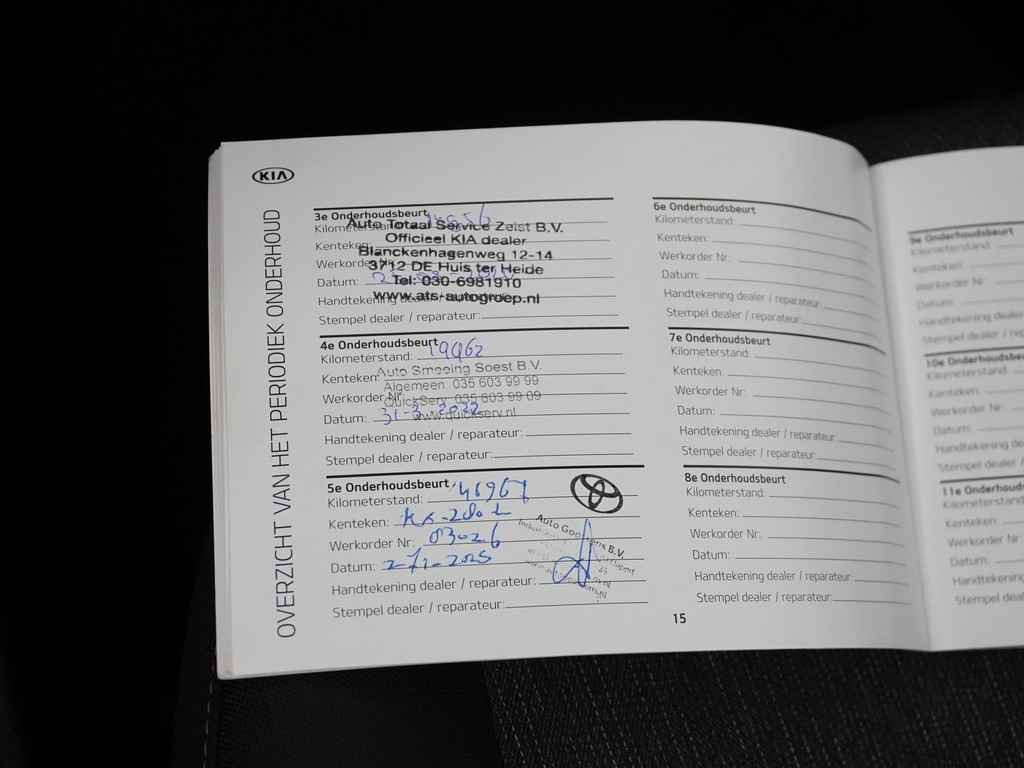 KIA
OVERZICHT VAN HET PERIODIEK ONDERHOUD
3e Onderhoudsbeurt
Kilometerstand:
Auto Totaal Service Zeist B.V.
Officieel KIA dealer
Kenteken:
Blanckenhagenweg 12-14
Werkorder Nr:
3712 DE Huis ter Heide
Datum:
Tel: 030-6981910
Handtekening dealer / reparateur:
www.ats-autogroep.nl
Stempel dealer / reparateur:
4e Onderhoudsbeurt
Kilometerstand: 19962
Auto Smeeing Soest B.V.
Kenteken:
Algemeen: 035 603 99 99
Werkorder Nr:
QuickServ: 035 603 99 09
Datum: 31-3-2022
www.quickserv.nl
Handtekening dealer / reparateur:
Stempel dealer / reparateur:
5e Onderhoudsbeurt
Kilometerstand: 46967
Kenteken:
Auto
B.V.
Werkorder Nr: 03026
Datum:
Handtekening dealer / reparateur:
Stempel dealer / reparateur:
6e Onderhoudsbeurt
Kilometerstand:
Kenteken:
Werkorder Nr:
Datum:
Handtekening dealer / reparateur:
Stempel dealer / reparateur:
7e Onderhoudsbeurt
Kilometerstand:
Kenteken:
Werkorder Nr:
Datum:
Handtekening dealer / reparateur:
Stempel dealer / reparateur:
8e Onderhoudsbeurt
Kilometerstand:
Kenteken:
Werkorder Nr:
Datum:
Handtekening dealer / reparateur:
Stempel dealer / reparateur:
15
9e Onderhoudsbeurt
Kilometerstand:
Kenteken:
Werkorder Nr:
Datum:
Handtekening dealer
Stempel dealer / re
10e Onderhoudsbe
Kilometerstand:
Kenteken:
Werkorder Nr:
Datum:
Handtekening de
Stempel dealer / r
11e Onderhouds
Kilometerstand:
Kenteken:
Werkorder Nr:
Datum:
Handtekening
Stempel deale